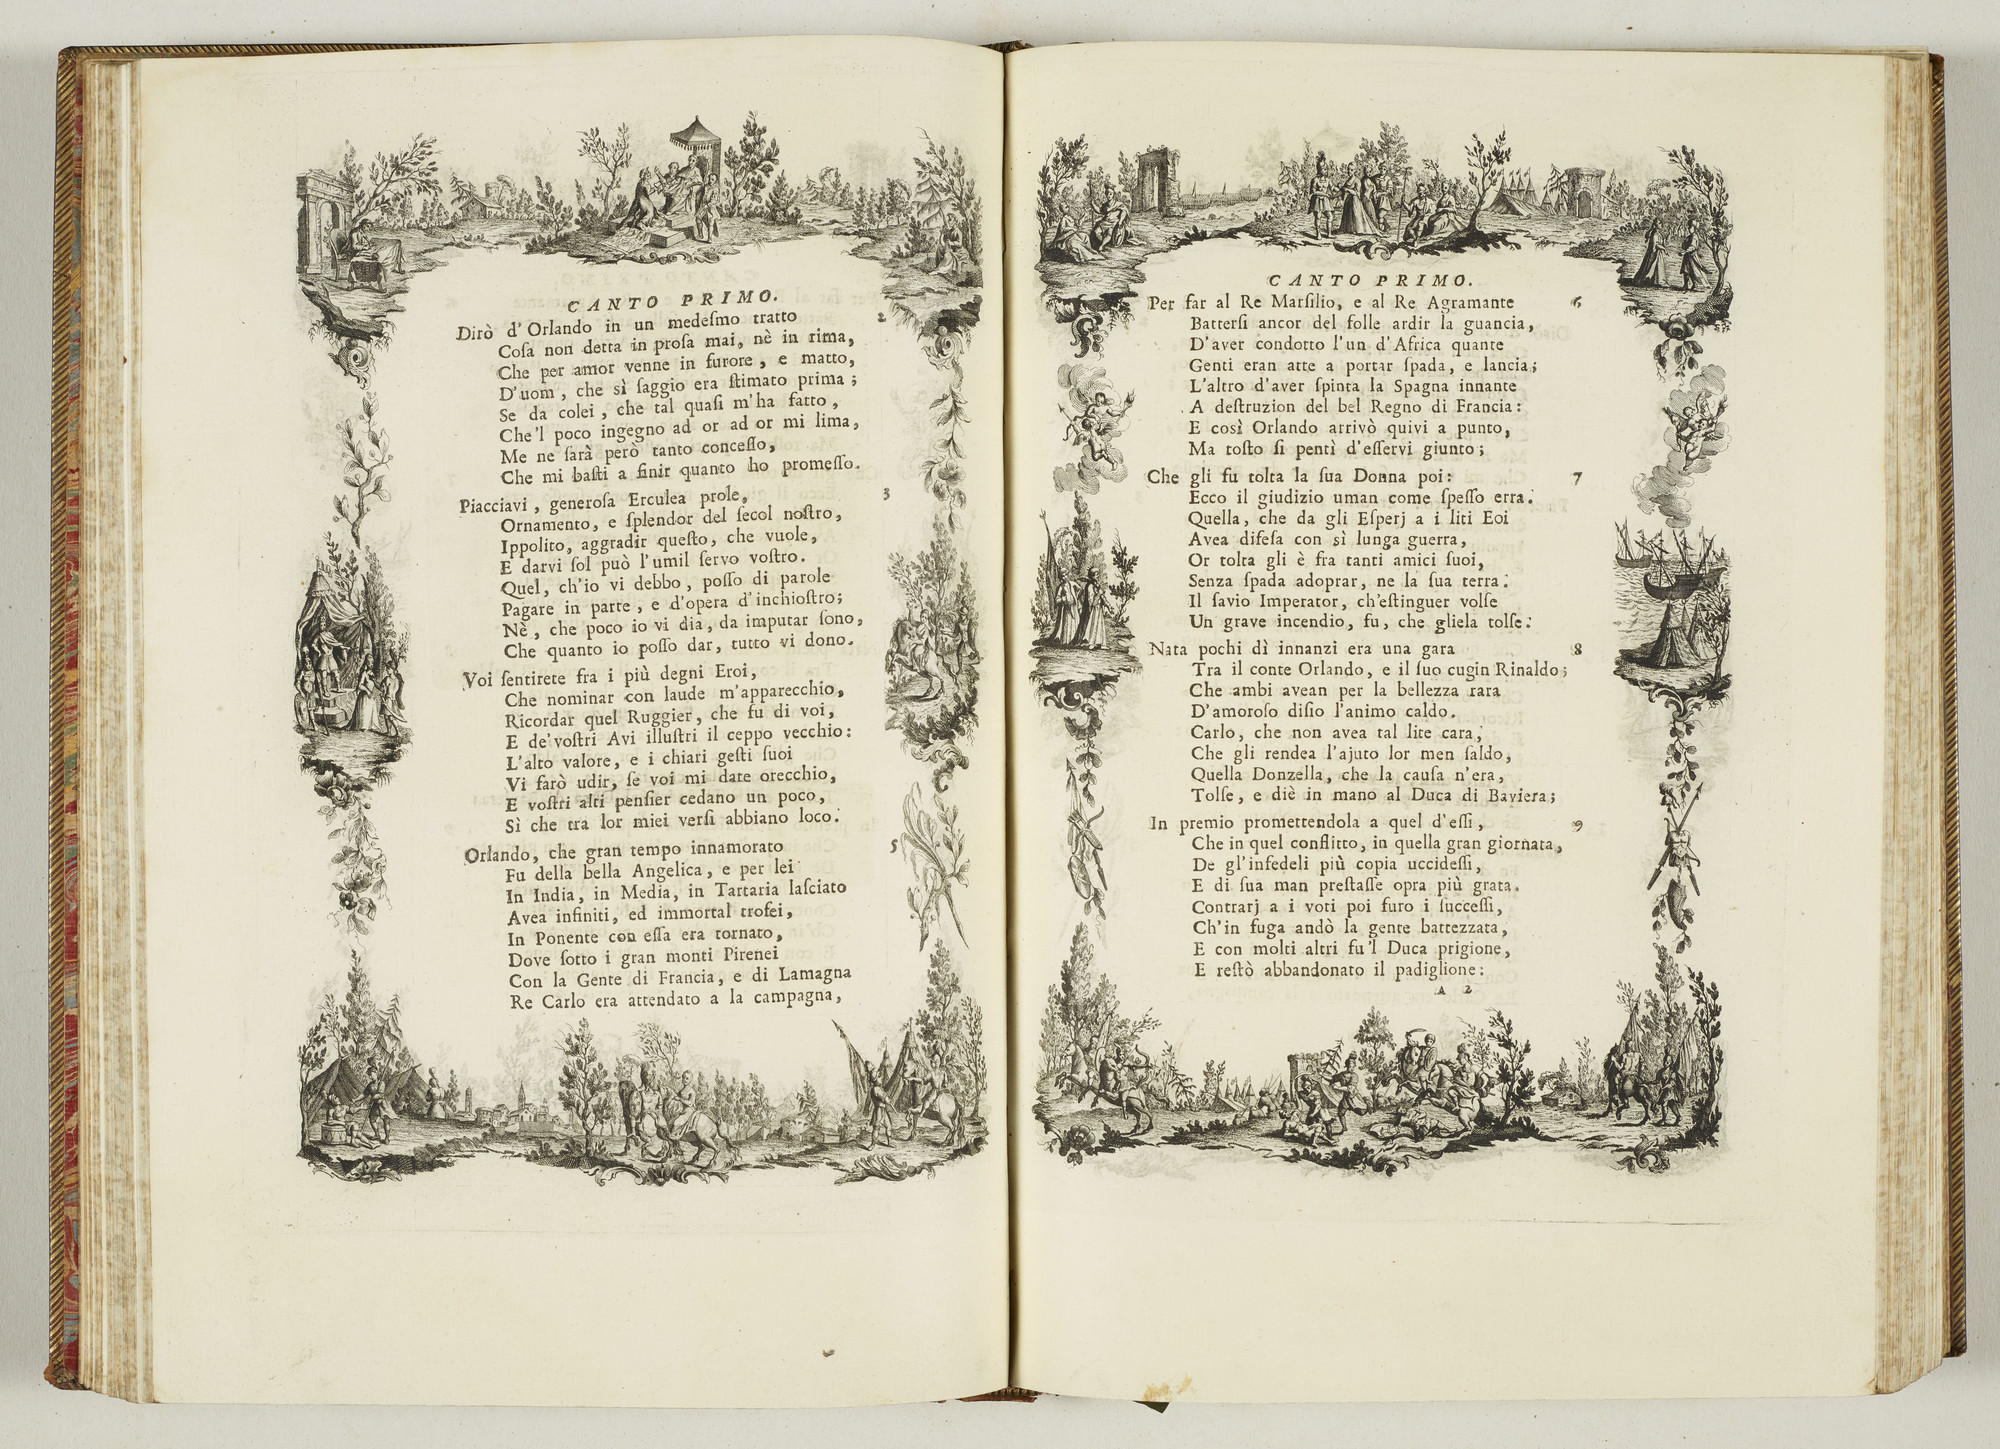 CANTO PRIMO.
Dirò d'Orlando in un medeſmo tratto 2
Coſa non detta in proſa mai, nè in rima,
Che per amor venne in furore, e matto,
D'uom, che sì ſaggio era ſtimato prima;
Se da colei, che tal quaſi m'ha fatto,
Che'l poco ingegno ad or ad or mi lima,
Me ne ſarà però tanto conceſſo,
Che mi baſti a finir quanto ho promeſſo.
Piacciavi, generoſa Erculea prole, 3
Ornamento, e ſplendor del ſecol noſtro,
Ippolito, aggradir queſto, che vuole,
E darvi ſol può l'umil ſervo voſtro.
Quel, ch'io vi debbo, poſſo di parole
Pagare in parte, e d'opera d'inchioſtro;
Nè, che poco io vi dia, da imputar ſono,
Che quanto io poſſo dar, tutto vi dono.
Voi ſentirete fra i più degni Eroi,
Che nominar con laude m'apparecchio,
Ricordar quel Ruggier, che fu di voi,
E de'voſtri Avi illuſtri il ceppo vecchio:
L'alto valore, e i chiari geſti ſuoi
Vi farò udir, ſe voi mi date orecchio,
E voſtri alti penſier cedano un poco,
Sì che tra lor miei verſi abbiano loco.
Orlando, che gran tempo innamorato 5
Fu della bella Angelica, e per lei
In India, in Media, in Tartaria laſciato
Avea infiniti, ed immortal trofei,
In Ponente con eſſa era tornato,
Dove ſotto i gran monti Pirenei
Con la Gente di Francia, e di Lamagna
Re Carlo era attendato a la campagna,
CANTO PRIMO.
Per far al Re Marſilio, e al Re Agramante 6
Batterſi ancor del folle ardir la guancia,
D'aver condotto l'un d'Africa quante
Genti eran atte a portar ſpada, e lancia;
L'altro d'aver ſpinta la Spagna innante
A deſtruzion del bel Regno di Francia:
E così Orlando arrivò quivi a punto,
Ma toſto ſi pentì d'eſſervi giunto;
Che gli fu tolta la ſua Donna poi: 7
Ecco il giudizio uman come ſpeſſo erra.
Quella, che da gli Eſperj a i liti Eoi
Avea difeſa con sì lunga guerra,
Or tolta gli è fra tanti amici ſuoi,
Senza ſpada adoprar, ne la ſua terra.
Il ſavio Imperator, ch'eſtinguer volſe
Un grave incendio, fu, che gliela tolſe.
Nata pochi dì innanzi era una gara 8
Tra il conte Orlando, e il ſuo cugin Rinaldo;
Che ambi avean per la bellezza rara
D'amoroſo diſio l'animo caldo.
Carlo, che non avea tal lite cara,
Che gli rendea l'ajuto lor men ſaldo,
Quella Donzella, che la cauſa n'era,
Tolſe, e diè in mano al Duca di Baviera;
In premio promettendola a quel d'eſſi, 9
Che in quel conflitto, in quella gran giornata,
De gl'infedeli più copia uccideſſi,
E di ſua man preſtaſſe opra più grata.
Contrarj a i voti poi furo i ſucceſſi,
Ch'in fuga andò la gente battezzata,
E con molti altri fu'l Duca prigione,
E reſtò abbandonato il padiglione:
A 2